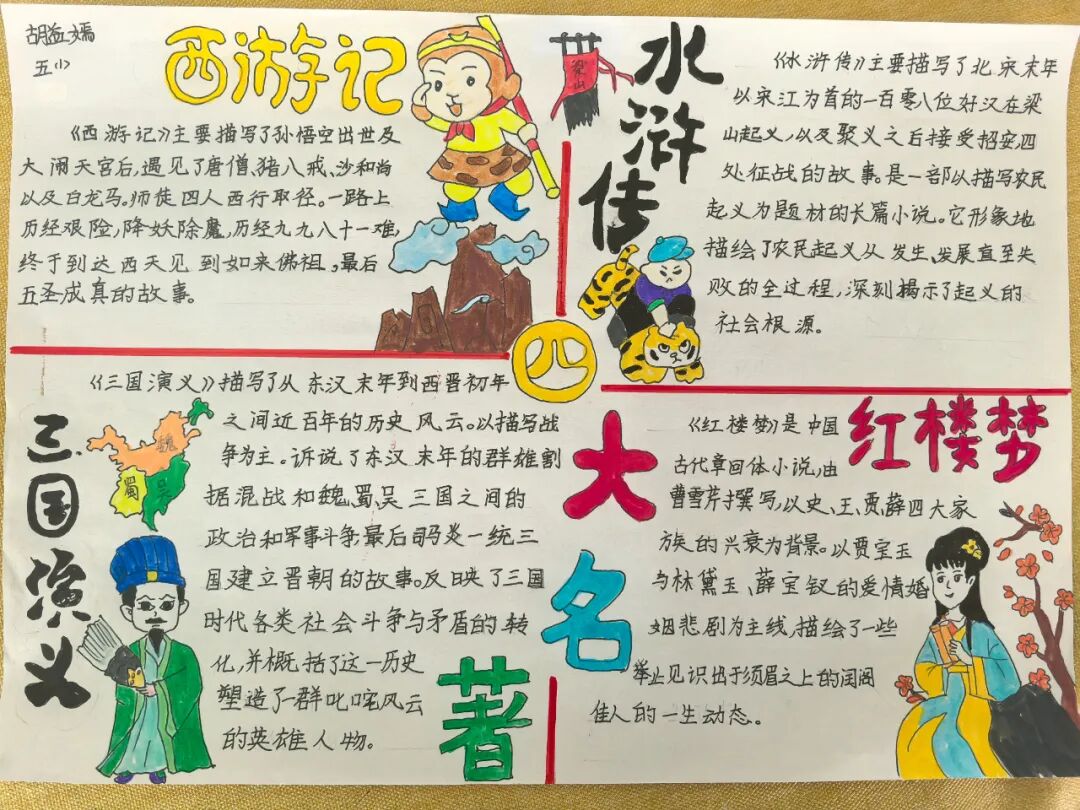 胡益嫣
五(1)
西游记
《西游记》主要描写了孙悟空出世及
大闹天宫后,遇见了唐僧、猪八戒、沙和尚
以及白龙马。师徒四人西行取径。一路上
历经艰险,降妖除魔,历经九九八十一难,
终于到达西天见到如来佛祖,最后
五圣成真的故事。
梁山
水浒传
《水浒传》主要描写了北宋末年
以宋江为首的一百零八位好汉在梁
山起义,以及聚义之后接受招安,四
处征战的故事。是一部以描写农民
起义为题材的长篇小说。它形象地
描绘了农民起义从发生、发展直至失
败的全过程,深刻揭示了起义的
社会根源。
四大名著
三国演义
《三国演义》描写了从东汉末年到西晋初年
之间近百年的历史风云。以描写战
争为主。诉说了东汉末年的群雄割
据混战和魏、蜀、吴三国之间的
政治和军事斗争,最后司马炎一统三
国建立晋朝的故事。反映了三国
时代各类社会斗争与矛盾的转
化,并概括了这一历史
塑造了一群叱咤风云
的英雄人物。
魏
蜀
吴
红楼梦
《红楼梦》是中国
古代章回体小说,由
曹雪芹撰写,以史、王、贾、薛四大家
族的兴衰为背景。以贾宝玉
与林黛玉、薛宝钗的爱情婚
姻悲剧为主线,描绘了一些
举止见识出于须眉之上的闺阁
佳人的一生动态。